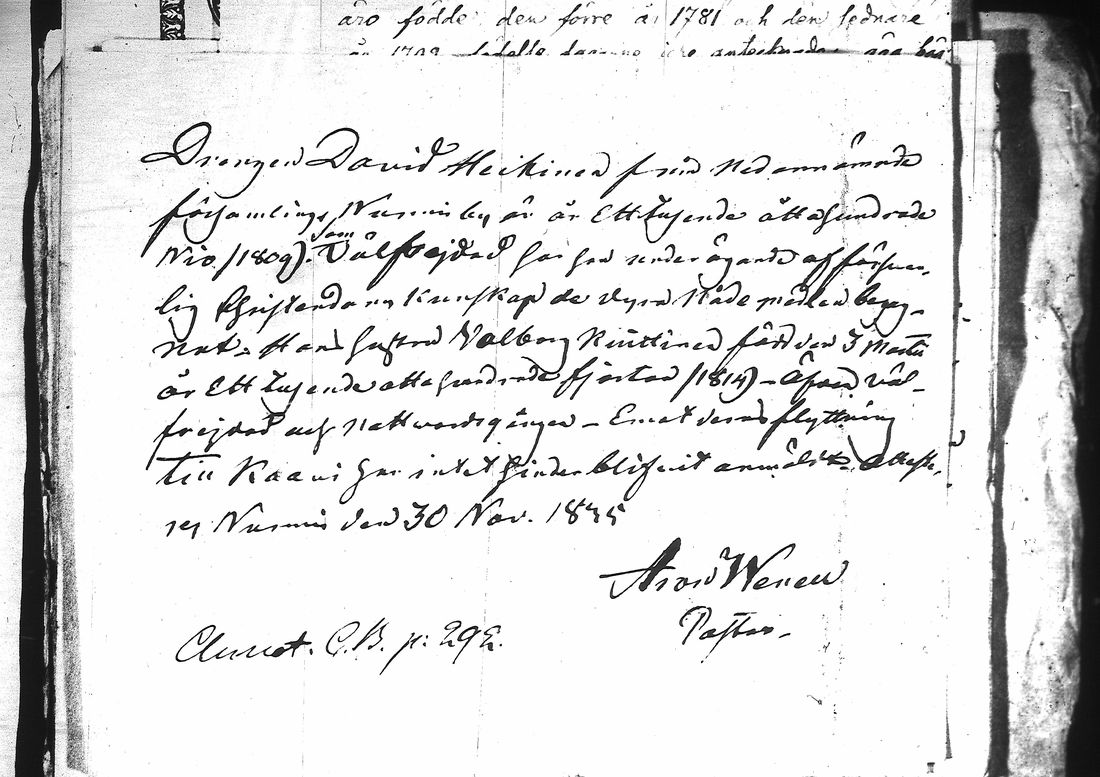 äro födde, den förre år 1781 och den sednare
år
Drengen David Heikinen från Nedannämnde
församlings Nurmis by är år Ett tusende åttahundrade
Nio /1809/. som Välfrejdad har han under ägande af försvar-
lig Christendoms Kunskap de dyra Nådemedlen begag-
nat. Hans hustru Valborg Kinttinen född den 3 Martii
år Ett tusende åttahundrade fjorton /1814/ – Äfven väl-
frejdad och Nattwardsgången – Emot deras flyttning
till Kaavi har intet hinder blifvit anmäldt. Atteste-
rar Nurmis den 30 Nov. 1835
Aron Wenell
Pastor.
C.B. p: 292.